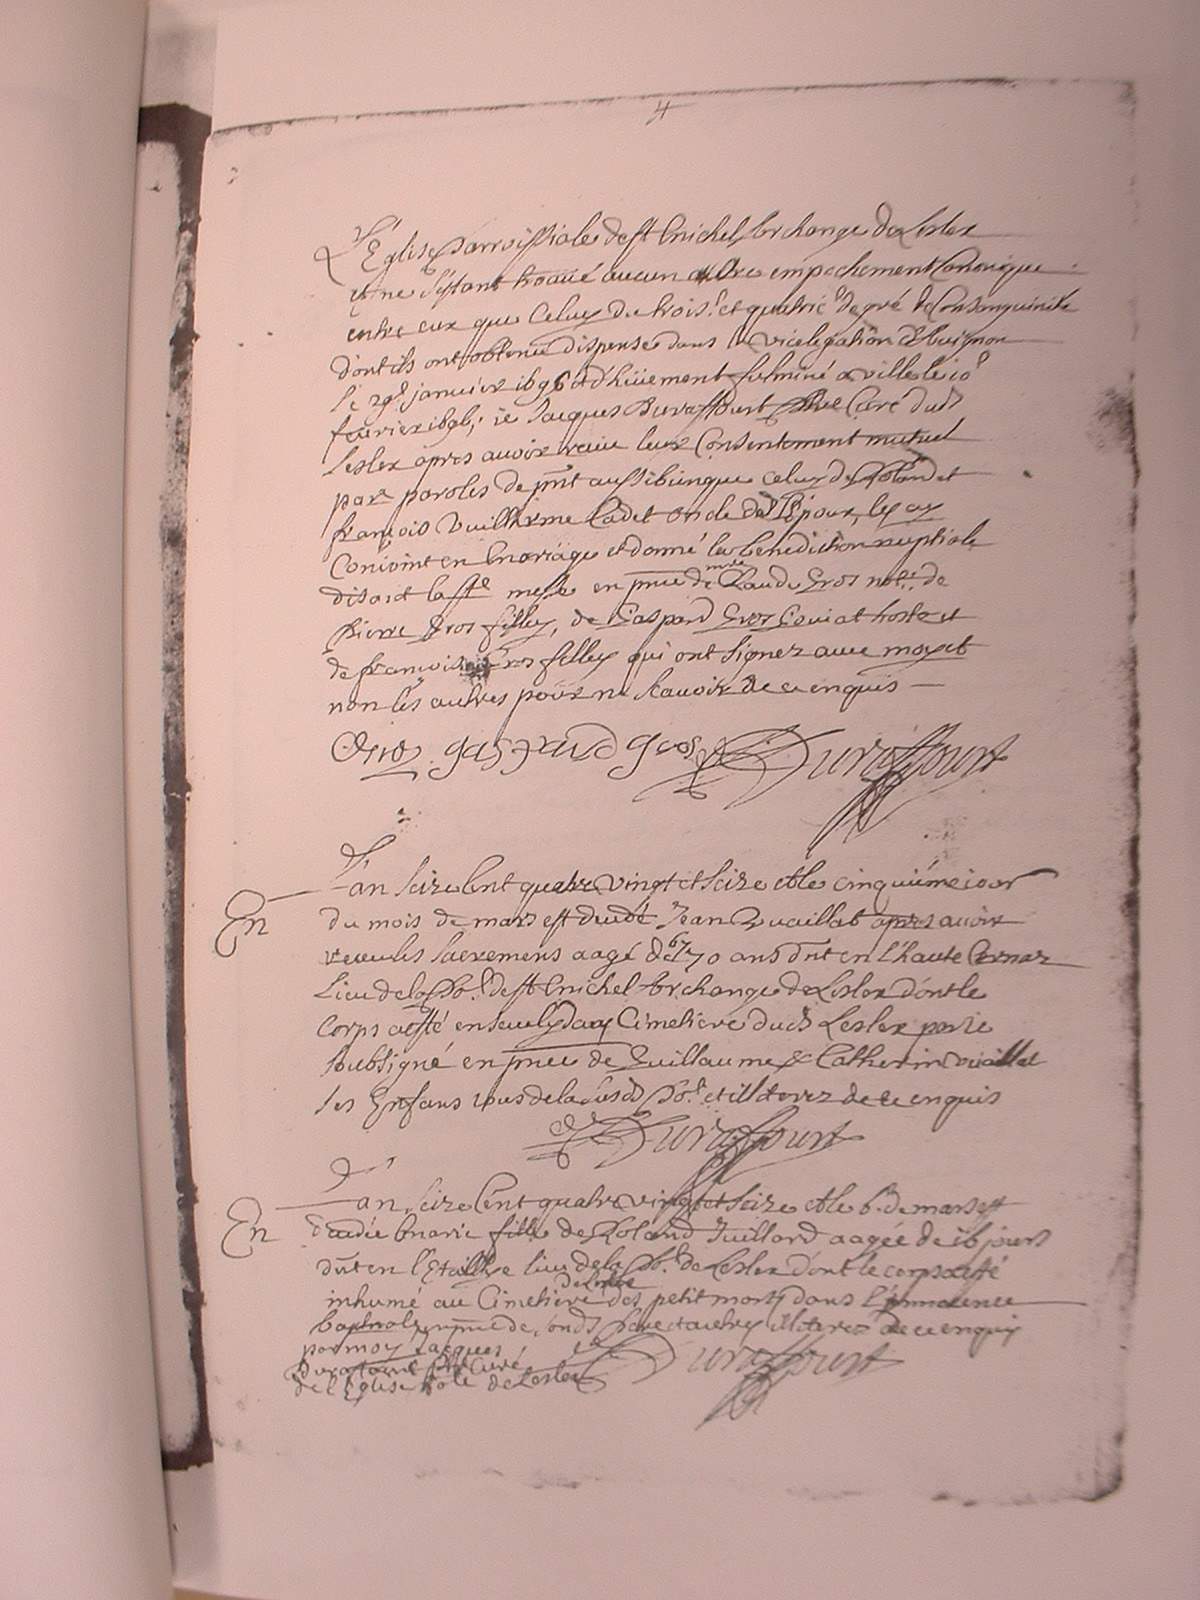 4
L'Eglise Parroissiale de st Michel Archange de Lesler
et ne s'estant trouué aucun autre empechement Canonique
entre eux que Celuy du trois.e et quatrie degré de Consanguinité
dont ils ont obtenu dispense dans la vicelegation d'Auignon
le 29.e januier 1696 et dhüement fulminé a ville le 10.e
feurier 1696, ie Jacques Duraffourt Curé dud
Lesler apres auoir receu leur Consentement mutuel
par paroles de pnt aussi bien que celuy de Roland et
françois Vuillerme Cadet oncle de l'Epoux, les ay
Conioint en Mariage et donné la benediction nuptiale
disant la ste messe en pnce de me Claude Gros nore de
Pierre Gros filley, de Gaspard Gros hoste et
de françois Gros filley qui ont signez auec moy et
non les autres pour ne scauoir de ce enquis
Gros gaspard gros Duraffourt
En
L'an seize Cent quatre vingt et seize et le cinquiéme iour
du mois de mars est decedé Jean Vuaillat apres auoir
receu les sacremens aagé de 70 ans dnt en l'haute
Lieu de la de st Michel Archange de Lesler dont le
Corps a esté enseuely au Cimetiere dud Lesler par le
soubsigné en pnce de Guillaume & Catherin Vuaillat
ses Enfans tous de la susd et illiterez de ce enquis
Duraffourt
En
L'an seize Cent quatre vingt et seize et le 6. de mars est
decedée Marie fille de Roland Juillard aagée de 16 jours
dnt en l' lieu de la de Lesler dont le corps a esté
inhumé au Cimetiere des petit morts dans l'innocence
baptmale en pnce de sond Pere et autres illiterez de ce enquis
par moy Jacques
Duraffourt Curé
de l'Eglise de Lesler Duraffourt